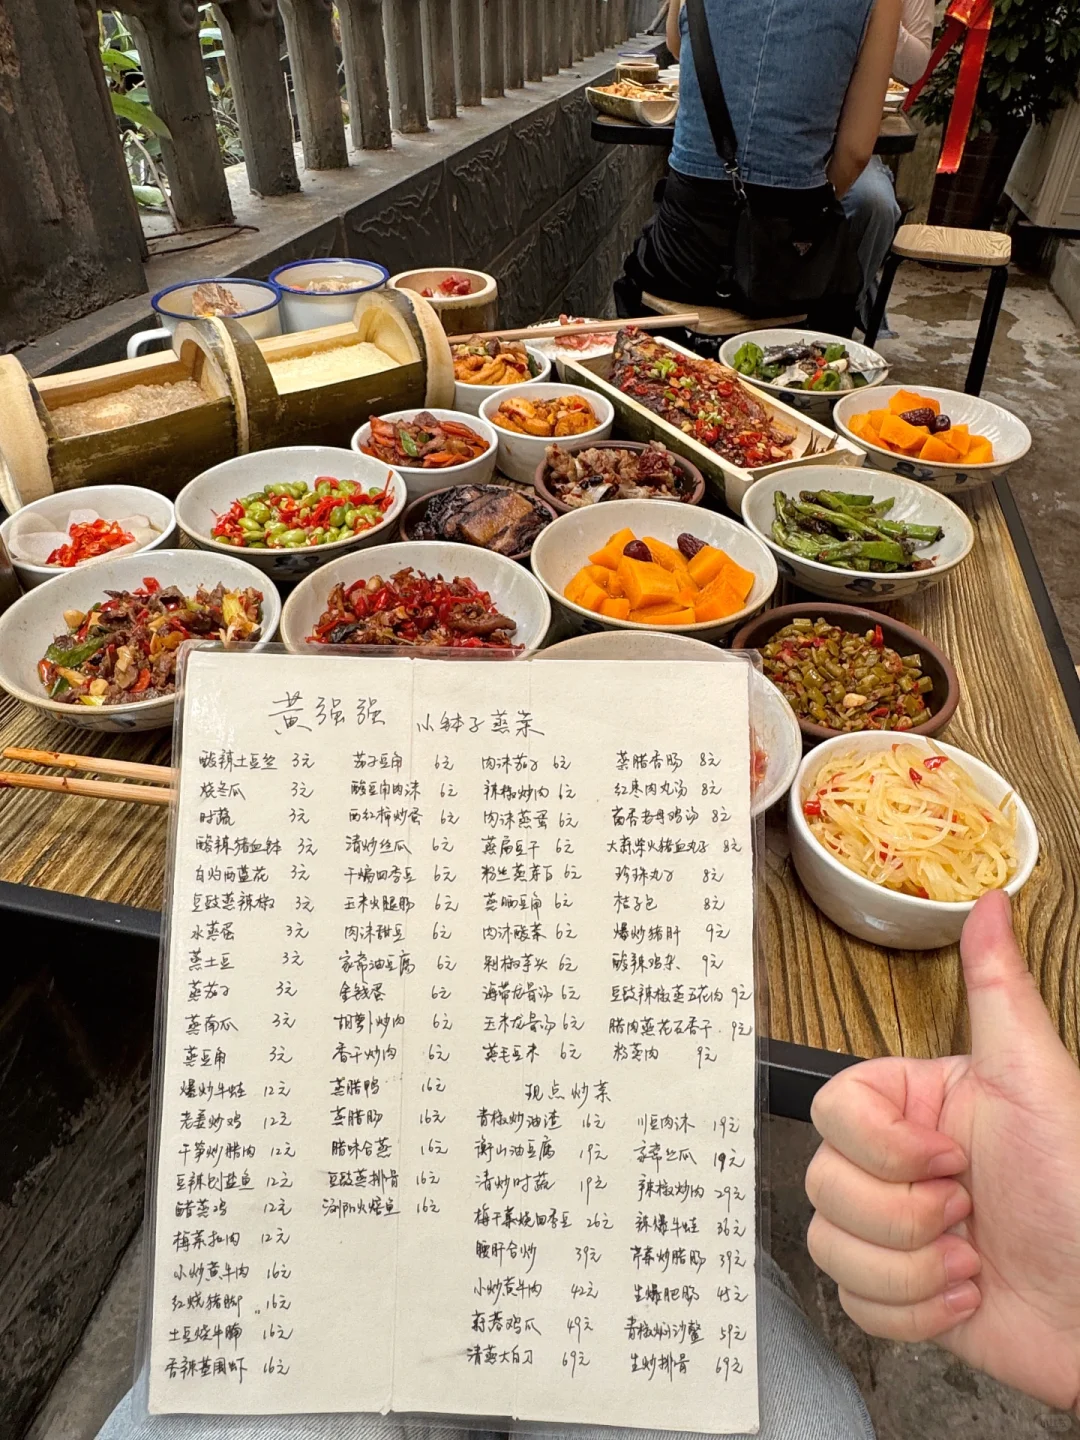 黄强强 小钵子蒸菜
酸辣土豆丝 3元 茄子豆角 6元 肉沫茄子 6元 蒸腊香肠 8元
烧冬瓜 3元 酸豆角肉沫 6元 辣椒炒肉 6元 红枣肉丸汤 8元
时蔬 3元 西红柿炒蛋 6元 肉沫蒸蛋 6元 茴香老母鸡汤 8元
酸辣猪血钵 3元 清炒丝瓜 6元 蒸扁豆干 6元 大蒜柴火猪血丸子 8元
白灼西蓝花 3元 干煸四季豆 6元 粉丝蒸娃百 6元 珍珠丸子 8元
豆豉蒸辣椒 3元 玉米火腿肠 6元 蒸晒豆角 6元 桔子包 8元
水蒸蛋 3元 肉沫甜豆 6元 肉沫酸菜 6元 爆炒猪肝 9元
蒸土豆 3元 家常油豆腐 6元 剁椒芋头 6元 酸辣鸡杂 9元
蒸茄子 3元 金钱蛋 6元 海带龙骨汤 6元 豆豉辣椒蒸五花肉 9元
蒸南瓜 3元 胡萝卜炒肉 6元 玉米龙骨汤 6元 腊肉蒸花石香干 9元
蒸豆角 3元 香干炒肉 6元 蒸毛豆米 6元 粉蒸肉 9元
爆炒牛蛙 12元 蒸腊鸭 16元 现点炒菜
老姜炒鸡 12元 蒸腊肠 16元 青椒炒油渣 16元 川豆肉沫 19元
干笋炒腊肉 12元 腊味合蒸 16元 衡山油豆腐 19元 家常丝瓜 19元
豆辣刁蓝鱼 12元 豆豉蒸排骨 16元 清炒时蔬 19元 辣椒炒肉 29元
醋蒸鸡 12元 浏阳火焙鱼 16元 梅干菜烧四季豆 26元 辣爆牛蛙 36元
梅菜扣肉 12元 腰肝合炒 39元 芹菜炒腊肠 39元
小炒黄牛肉 16元 小炒黄牛肉 42元 生爆肥肠 45元
红烧猪脚 16元 蒜香鸡爪 49元 青椒焖沙鳖 59元
土豆烧牛腩 16元 清蒸大白刁 69元 生炒排骨 69元
香辣基围虾 16元